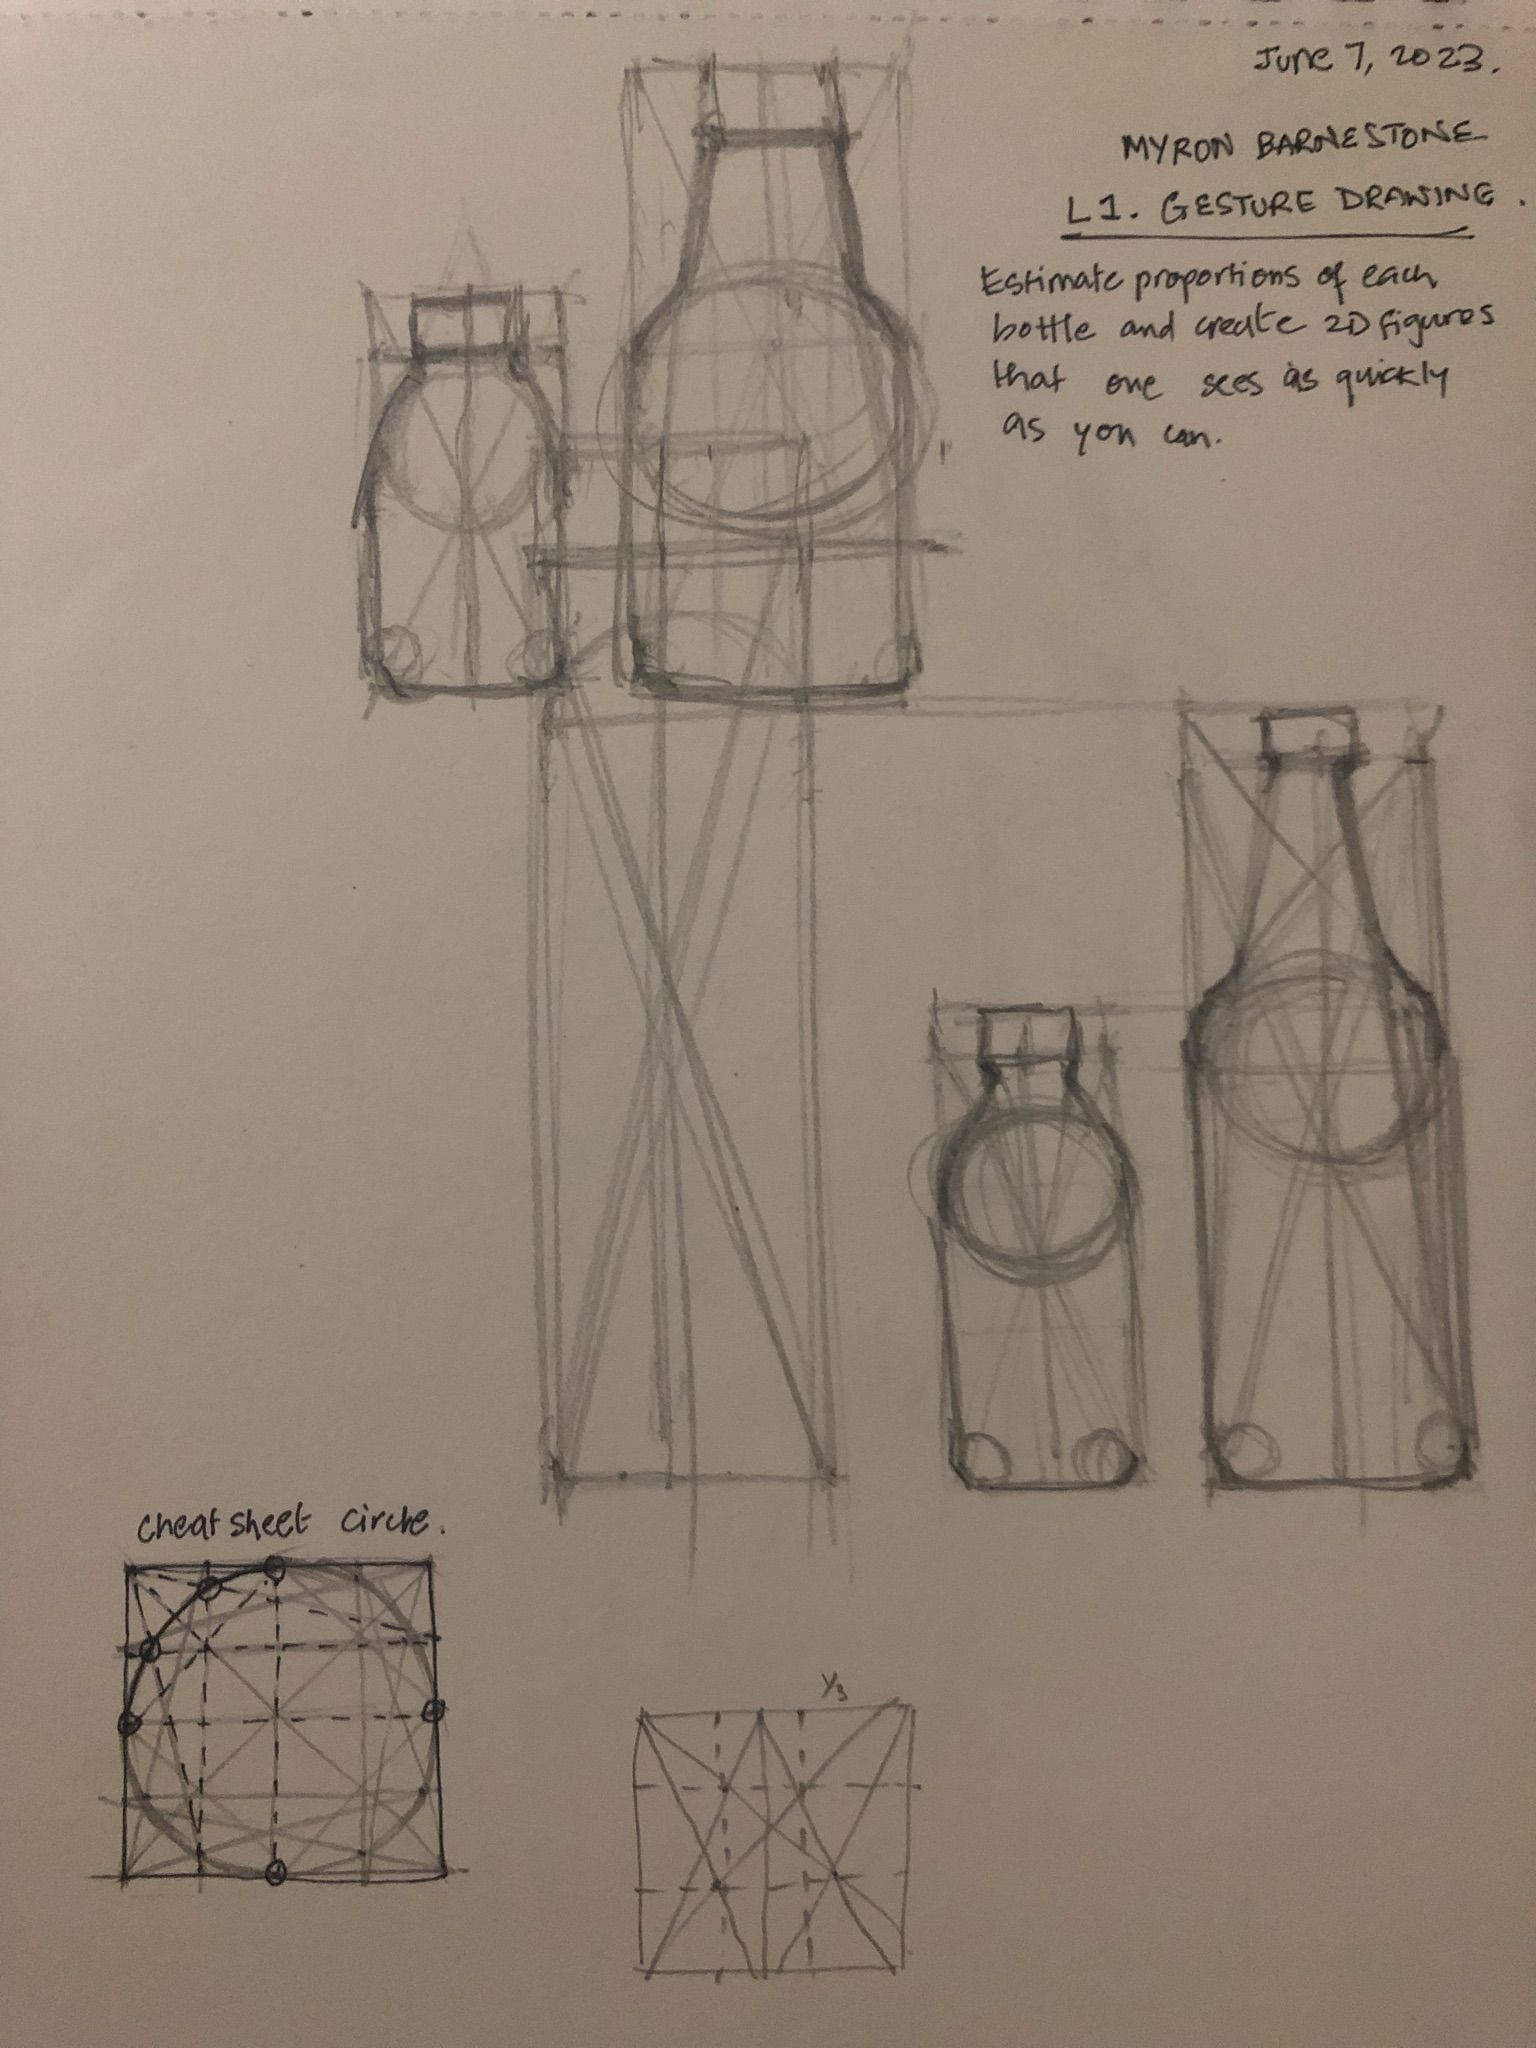 June 7, 2023.
MYRON BARNESTONE
L1. GESTURE DRAWING.
Estimate proportions of each
bottle and create 2D figures
that one sees as quickly
as you can.
cheat sheet circle.
1/3